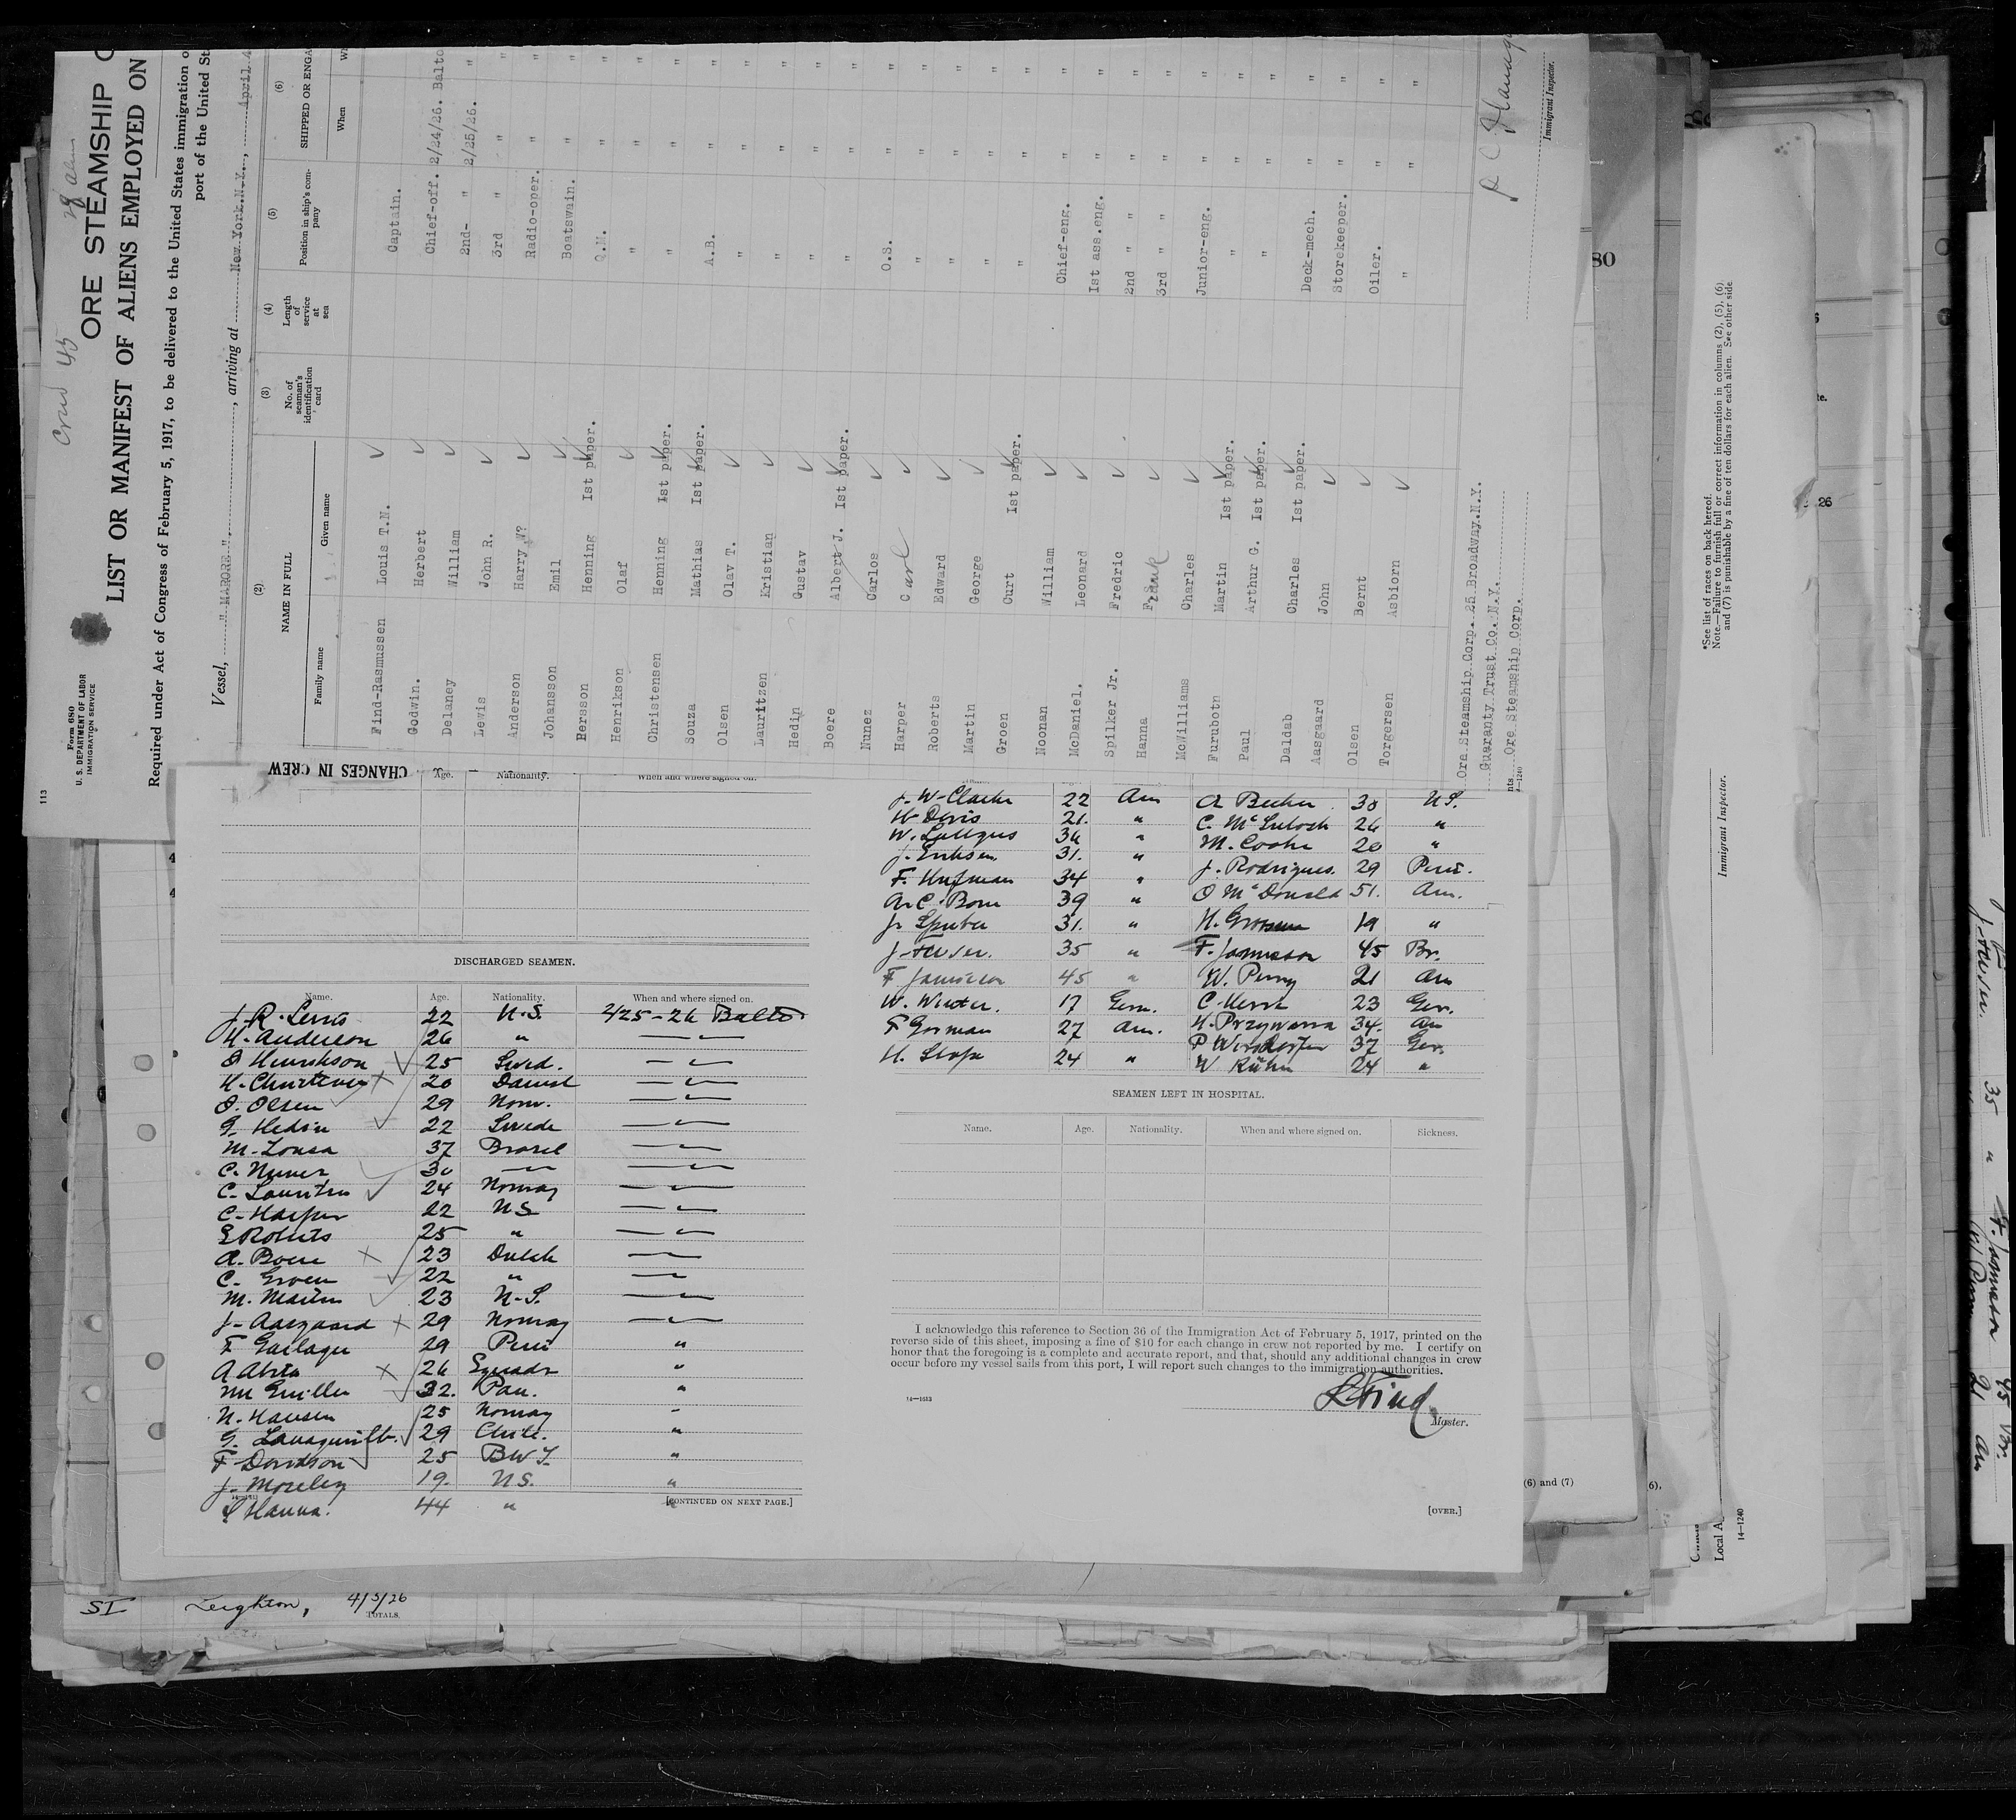 113
Form 680
U. S. DEPARTMENT OF LABOR
IMMIGRATION SERVICE
Crew 45
ORE STEAMSHIP
LIST OR MANIFEST OF ALIENS EMPLOYED ON
Required under Act of Congress of February 5, 1917, to be delivered to the United States immigration
port of the United
Vessel, "MARORE", arriving at New York.N.Y., April
(2) (3) (4) (5) (6)
NAME IN FULL
Family name Given name
No. of seaman's identification card
Length of service at sea
Position in ship's company
SHIPPED OR
When
Find-Rasmussen Louis T.N. Captain.
Godwin. Herbert Chief-off. 2/24/26. Balto
Delaney William 2nd- " 2/25/26. "
Lewis John R. 3rd " " "
Anderson Harry W? Radio-oper. " "
Johansson Emil Boatswain. " "
Bersson Henning Ist paper. Q.M. " "
Henrikson Olaf " " "
Christensen Henning Ist paper. " " "
Souza Mathias Ist paper. A.B. " "
Olsen Olav T. " " "
Lauritzen Kristian " " "
Hedin Gustav " " "
Boere Albert J. Ist paper. " " "
Nunez Carlos O.S. " "
Harper Carl " " "
Roberts Edward " " "
Martin George " " "
Groen Curt Ist paper. " " "
Noonan William Chief-eng. " "
McDaniel. Leonard Ist ass.eng. " "
Spilker Jr. Fredric 2nd " " " "
Hanna Frank 3rd " " " "
McWilliams Charles Junior-eng. " "
Furubotn Martin Ist paper. " " "
Paul Arthur G. Ist paper. " " "
Daldab Charles Ist paper. Deck-mech. " "
Aasgaard John Storekeeper. " "
Olsen Bernt Oiler. " "
Torgersen Asbiorn " " "
Ore Steamship Corp. 25 Broadway.N.Y.
Guaranty Trust Co. N.Y.
Ore Steamship Corp.
Immigrant Inspector.
CHANGES IN CREW
Age. Nationality. When and where signed on.
DISCHARGED SEAMEN.
Name. Age. Nationality. When and where signed on.
J. R. Lewis 22 U.S. 2/25-26 Balto
H. Anderson 26 "
O Henrikson 25 Swed.
H. Christensen 20 Danish
O. Olsen 29 Norw.
G. Hedin 22 Swede
M. Souza 37 Brasil
C. Nunez 30
C. Lauritzen 24 Norway
C. Harper 22 U.S.
E Roberts 25 "
A. Boere 23 Dutch
C. Groen 22 "
M. Martin 23 U.S.
J. Aasgaard 29 Norway
29 Peru "
26 "
32. Pan. "
N. Hansen 25 Norway
G. 29 Chile. "
F Davidson 25 BWI "
J. Moseley 19. U.S. "
Hanna. 44 "
[CONTINUED ON NEXT PAGE.]
J. W. Clarke 22 Am
H Davis 21. "
W. 36 "
J. Eriksen 31. "
F. Hufman 34 "
A. C. 39 "
J. 31. "
J. 35 "
F Jamieson 45 "
W. Winter. 17 Germ.
F Gorman 27 Am.
H. 24 "
A Becker 30 U.S.
C. McIntosh 26 "
M. Cooke 20 "
J. Rodrigues. 29 Peru.
O McDonald 51. Am.
H. 19 "
F. Jamieson 45 Br.
W. Perry 21 Am
C. 23 Ger.
H. Przywarra 34. Am
P 37 Ger.
W Kühn 24 "
SEAMEN LEFT IN HOSPITAL.
Name. Age. Nationality. When and where signed on. Sickness.
I acknowledge this reference to Section 36 of the Immigration Act of February 5, 1917, printed on the
reverse side of this sheet, imposing a fine of $10 for each change in crew not reported by me. I certify on
honor that the foregoing is a complete and accurate report, and that, should any additional changes in crew
occur before my vessel sails from this port, I will report such changes to the immigration authorities.
14—1613
Master.
[OVER.]
SI Leighton, 4/5/26
TOTALS
80
26
*See list of races on back hereof.
Note.—Failure to furnish full or correct information in columns (2), (5), (6)
and (7) is punishable by a fine of ten dollars for each alien. See other side
Immigrant Inspector.
(6) and (7)
6),
Local
14—1240
35 "
F. Jamieson 45 Br.
W Perry 21 Am